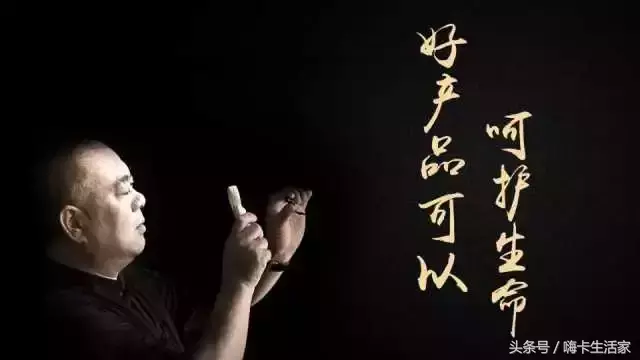 好产品可以
呵护生命
头条号 / 嗨卡生活家